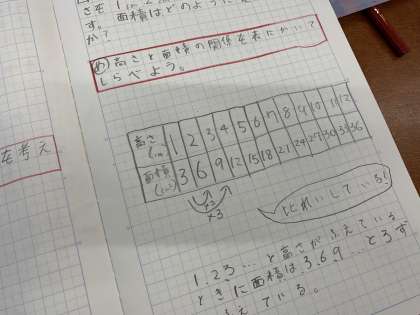 さを1
す。面積はどのように
か？
め 高さと面積の関係を表にかいて
しらべよう。
を考え
高さ 1 2 3 4 5 6 7 8 9 10 11 12
面積 3 6 9 12 15 18 21 24 27 30 33 36
×3 ×3
ひれいしている！
1.2.3…と高さがふえている
ときに面積は3.6.9…と3ず
ふえている。